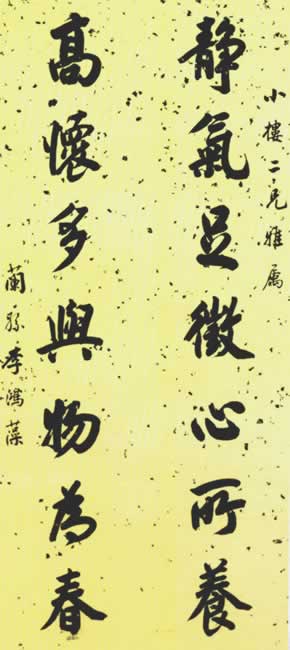 小樓二兄雅属
静氣足徵心所養
高懷多與物為春
蘭孫李鴻藻